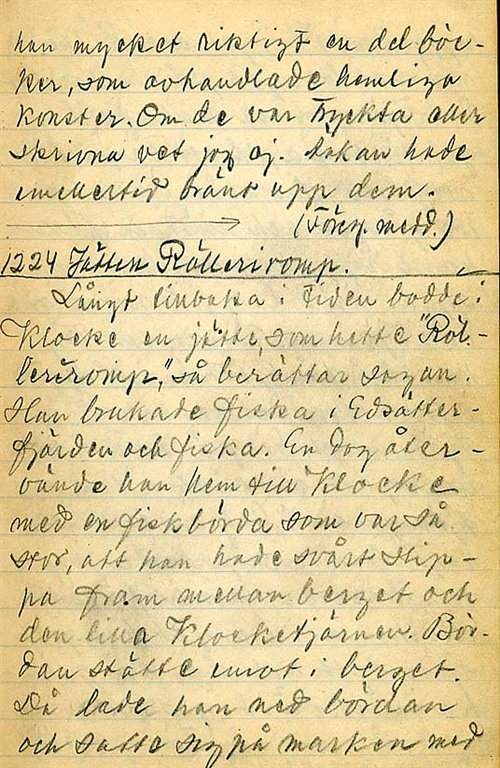 han mycket riktigt en del böc-
ker, som avhandlade hemliga
konster. Om de var tryckta eller
skrivna vet jag ej. Håkan hade
emellertid bränt upp dem.
(Föreg. medd.)
1224 Jätten Rölleriromp.
Långt tillbaka i tiden bodde i
Klocke en jätte, som hette "Röl-
leriromp," så berättar sagan.
Han brukade fiska i Edsätter-
fjärden och fiska. En dag åter-
vände han hem till Klocke
med en fiskbörda som var så
stor, att han hade svårt slip-
pa fram mellan berget och
den lilla Klocketjärnen. Bör-
dan stötte emot i berget.
Då lade han ned bördan
och satte sig på marken med